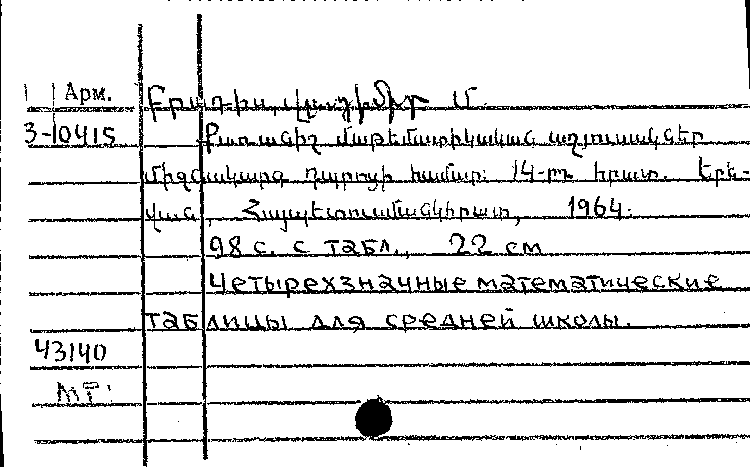 Арм.
Բրադիս, Վլադիմիր Մ.
3-10415
Քառանիշ մաթեմատիկական աղյուսակներ
միջնակարգ դպրոցի համար: 14-րդ հրատ. Երև-
վան, Հայպետուսմանկհրատ, 1964.
98 с. с табл., 22 см
Четырехзначные математические
таблицы для средней школы.
43140